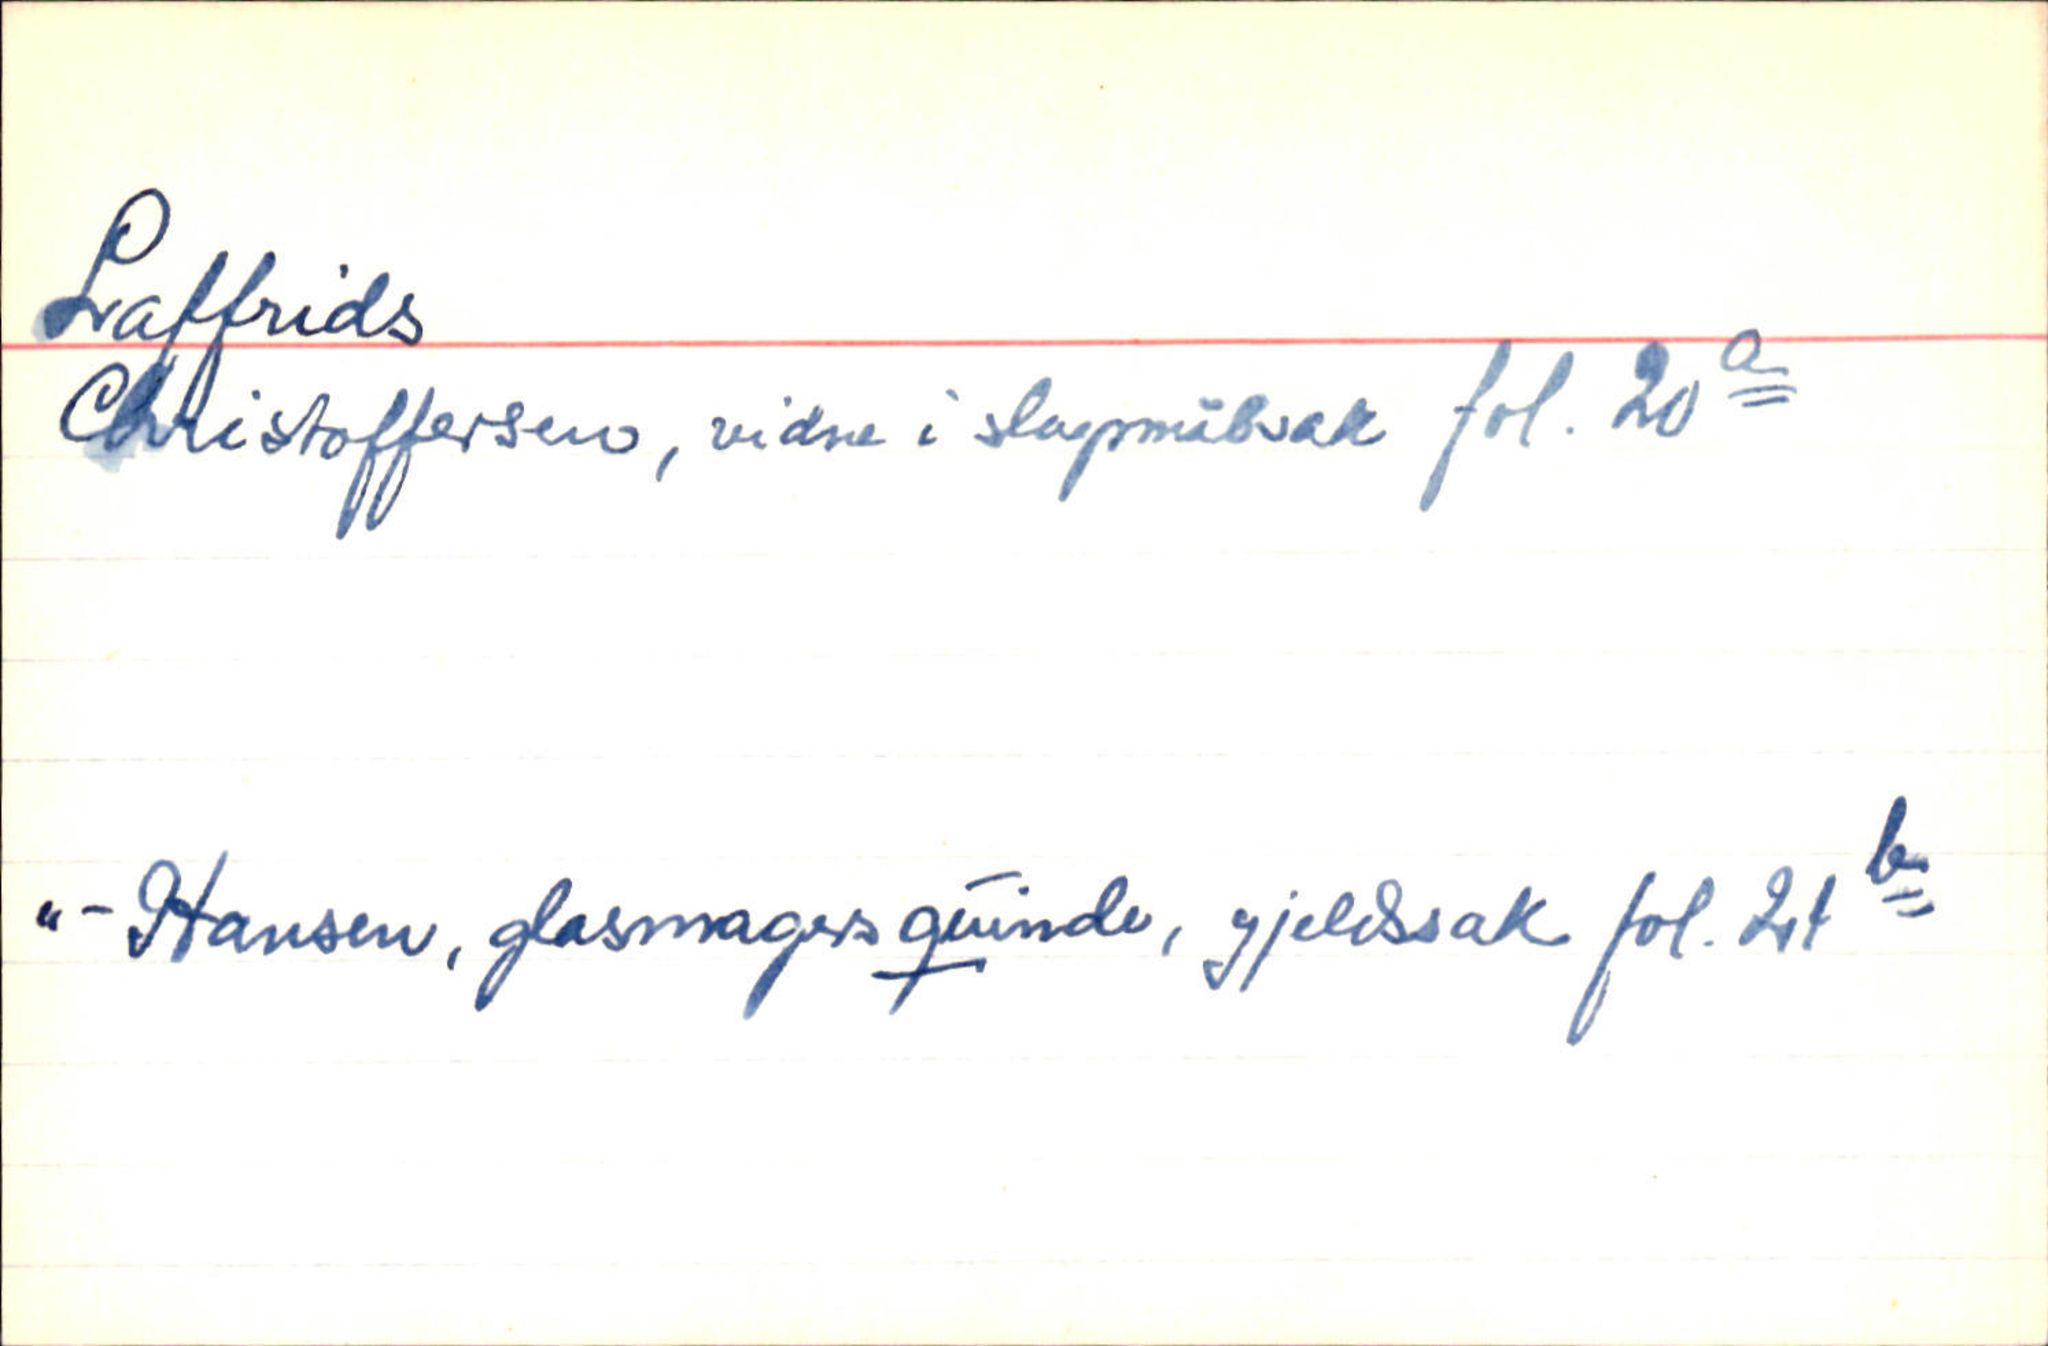 Laffrids
Christoffersen, vidne i slagsmålsak fol. 20 a
"- Hansen, glasmagers quinde, gjeldssak fol. 21 b